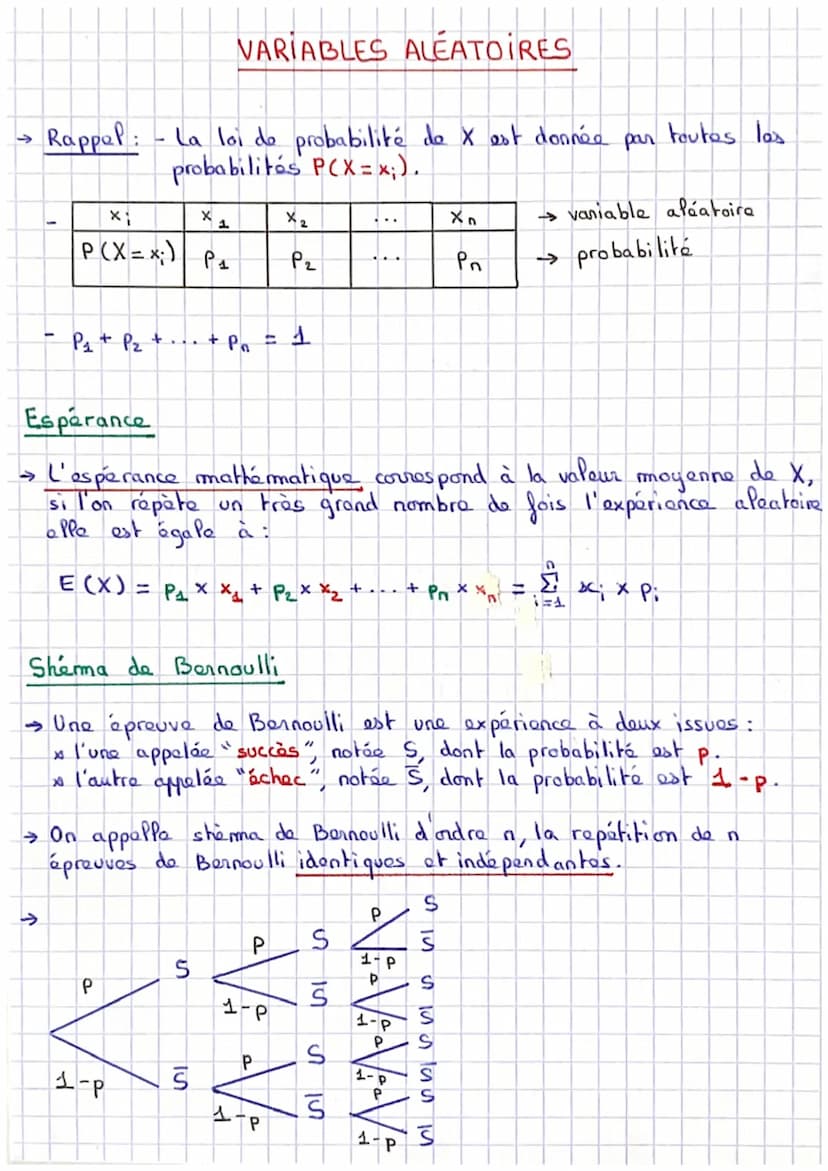 VARIABLES ALÉATOIRES
→ Rappel : - La loi de probabilité de X est donnée par toutes les
probabilités P(X = xi).
- xi x1 x2 ... xn → variable aléatoire
P(X = xi) P1 P2 ... Pn → probabilité
- P1 + P2 + ... + Pn = 1
Espérance
→ L'espérance mathématique correspond à la valeur moyenne de X,
si l'on répète un très grand nombre de fois l'expérience aleatoire
elle est égale à :
E(X) = P1 × x1 + P2 × x2 + ... + Pn × xn = Σ(i=1 → n) xi × Pi
Shéma de Bernoulli
→ Une épreuve de Bernoulli est une expérience à deux issues :
× l'une appelée "succès", notée S, dont la probabilité est p.
× l'autre appelée "échec", notée S̅, dont la probabilité est 1-p.
→ On appelle shéma de Bernoulli d'ordre n, la repétition de n
épreuves de Bernoulli identiques et indépendantes.
→
P S
S̅
P S 1-P
S P S
P 1-P S̅ 1-P S̅
P S P S
1-P S̅ 1-P S̅
1-P S̅ P S
1-P S̅